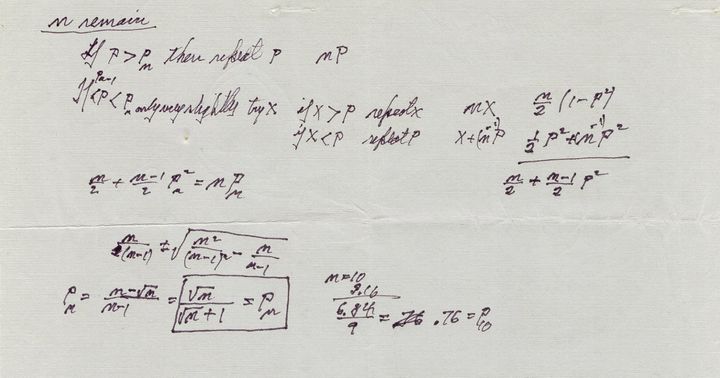 n remain
If P > P_n then repeat P nP
If P_{n-1} < P < P_n only very slightly try X if X > P repeat X nX n/2 (1-P²)
if X < P repeat P X+(n-1)P 1/2 P²+(n-1)P²
n/2 + (n-1)/2 P_n² = n P_n n/2 + (n-1)/2 P²
n/(n-1) ± √(n²/(n-1)² - n/(n-1))
P_n = (n-√n)/(n-1) = √n/(√n+1) = P_n n=10
3.16
6.84/9 = .76 = P_10